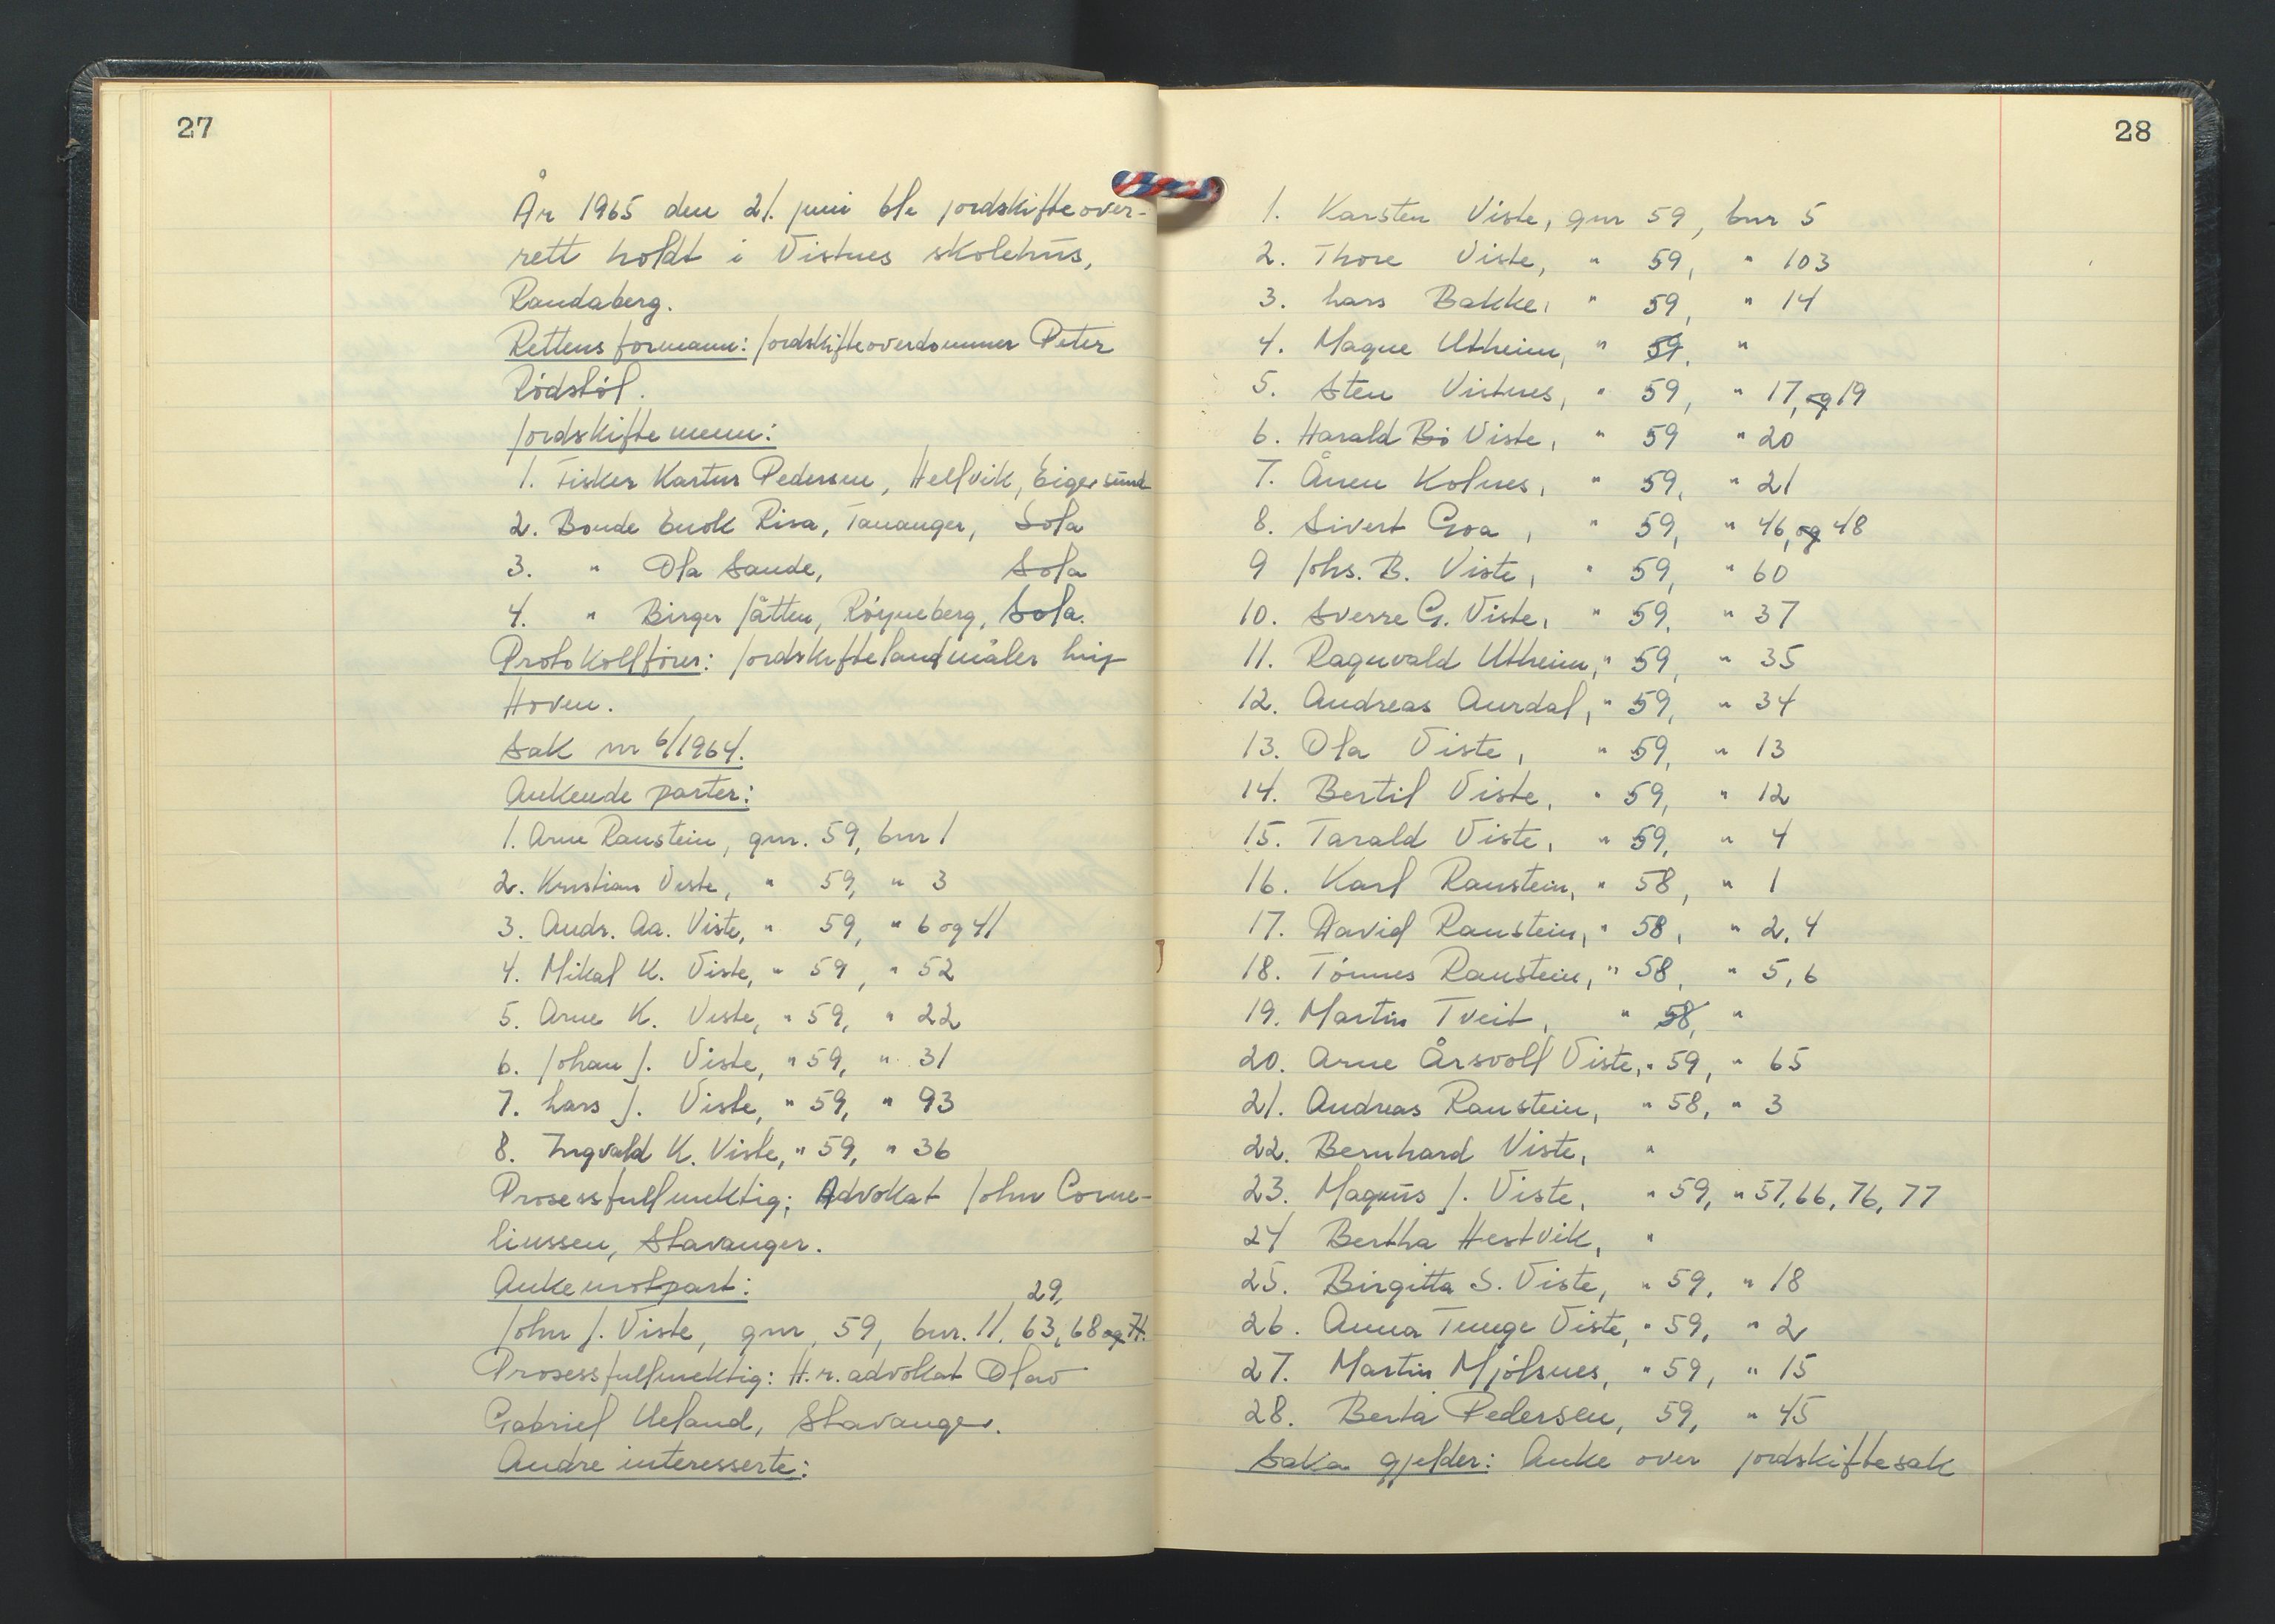 27
År 1965 den 21. juni ble jordskifteover-
rett holdt i Vistnes skolehus,
Randaberg.
Rettens formann: Jordskifteoverdommer Peter
Rødstøl.
Jordskiftemenn:
1. Fisker Kartus Pedersen, Hellvik, Eigersund
2. Bonde Enok Risa, Tananger, Sola
3. " Ola Sande, Sola
4. " Birger Jåtten, Røyneberg, Sola.
Protokollfører: Jordskiftelandmåler
Hoven.
Sak nr 6/1964.
Ankende parter:
1. Arne Raustein, gnr. 59, bnr 1
2. Kristian Viste, " 59, " 3
3. Andr. Aa. Viste, " 59, " 6 og 41
4. Mikal K. Viste, " 59, " 52
5. Arne K. Viste, " 59, " 22
6. Johan J. Viste, " 59, " 31
7. Lars J. Viste, " 59, " 93
8. Ingvald K. Viste, " 59, " 36
Prosessfullmektig: Advokat John Corne-
liussen, Stavanger.
Ankemotpart:
29,
John J. Viste, gnr, 59, bnr. 11, 63, 68 og 71.
Prosessfullmektig: H.r. advokat Olav
Gabriel Ueland, Stavanger.
Andre interesserte:
28
1. Karsten Viste, gnr 59, bnr 5
2. Thore Viste, " 59, " 103
3. Lars Bakke, " 59, " 14
4. Magne Utheim, " 59, "
5. Sten Vistnes, " 59, " 17, og 19
6. Harald Bø Viste, " 59 " 20
7. Ånen Kolnes, " 59, " 21
8. Sivert Goa, " 59, " 46, og 48
9 Johs. B. Viste, " 59, " 60
10. Sverre G. Viste, " 59, " 37
11. Ragnvald Utheim, " 59, " 35
12. Andreas Aurdal, " 59, " 34
13. Ola Viste, " 59, " 13
14. Bertil Viste, " 59, " 12
15. Tarald Viste, " 59, " 4
16. Karl Raustein, " 58, " 1
17. David Raustein, " 58, " 2, 4
18. Tønnes Raustein, " 58, " 5, 6
19. Martin Tveit, " 58, "
20. Arne Årsvoll Viste, " 59, " 65
21. Andreas Raustein, " 58, " 3
22. Bernhard Viste, "
23. Magnus J. Viste, " 59, " 57, 66, 76, 77
24 Bertha Hestvik, "
25. Birgitta S. Viste, " 59, " 18
26. Anna Tunge Viste, " 59, " 2
27. Martin Mjølsnes, " 59, " 15
28. Berta Pedersen, 59, " 45
Saka gjelder: Anke over jordskiftesak